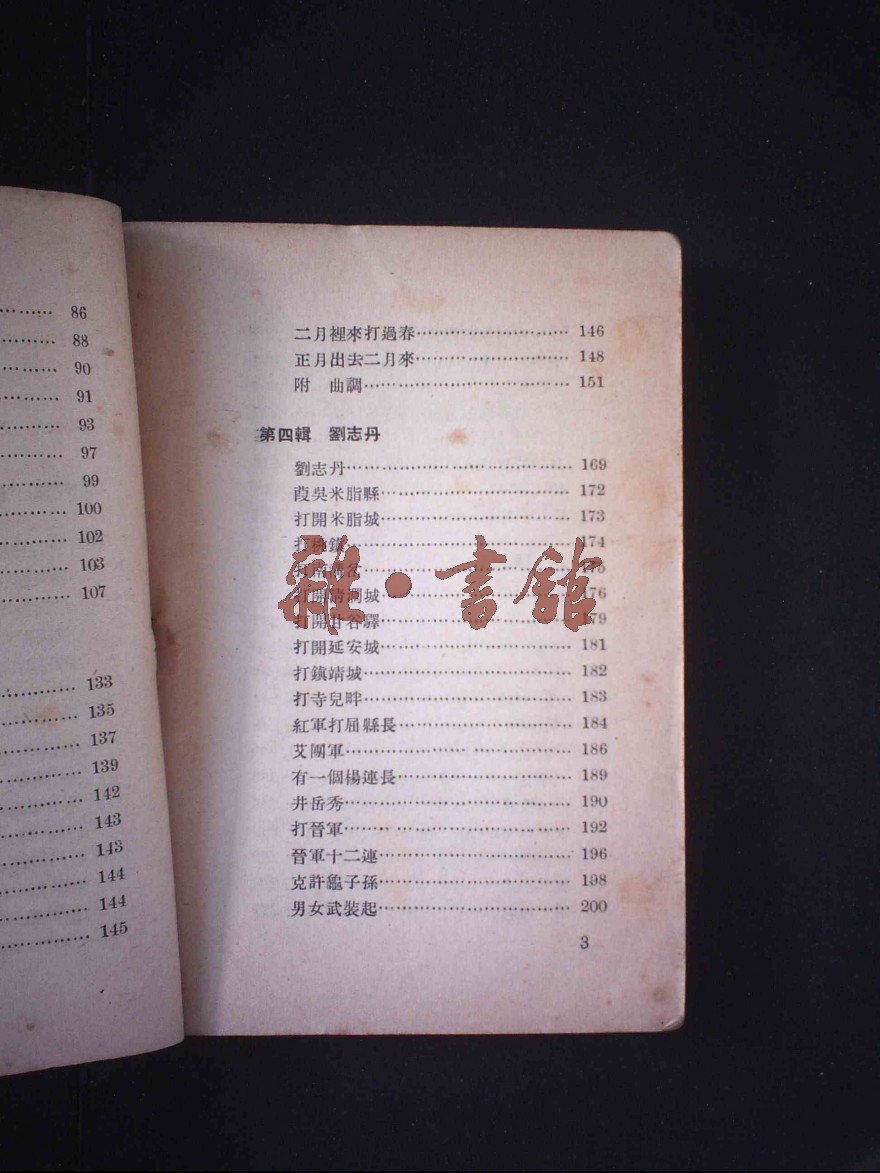 86
88
90
91
93
97
99
100
102
103
107
133
135
137
139
142
143
143
144
144
145
二月裡來打過春 146
正月出去二月來 148
附　曲調 151
第四輯　劉志丹
劉志丹 169
葭吳米脂縣 172
打開米脂城 173
打 鎮 174
打南溝岔 175
打開清澗城 176
打開甘谷驛 179
打開延安城 181
打鎮靖城 182
打寺兒畔 183
紅軍打屈縣長 184
艾團軍 186
有一個楊連長 189
井岳秀 190
打晉軍 192
晉軍十二連 196
克許龜子孫 198
男女武裝起 200
3
雜·書館